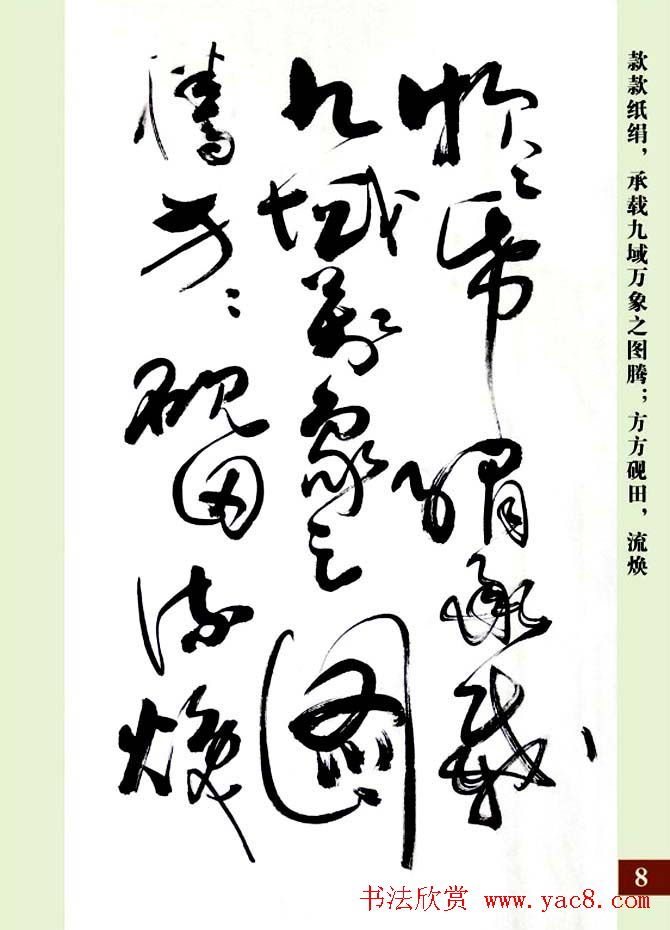 款款纸绢承载
九域万象之图
腾方方砚田流焕
款款纸绢，承载九域万象之图腾；方方砚田，流焕
8
书法欣赏 www.yac8.com